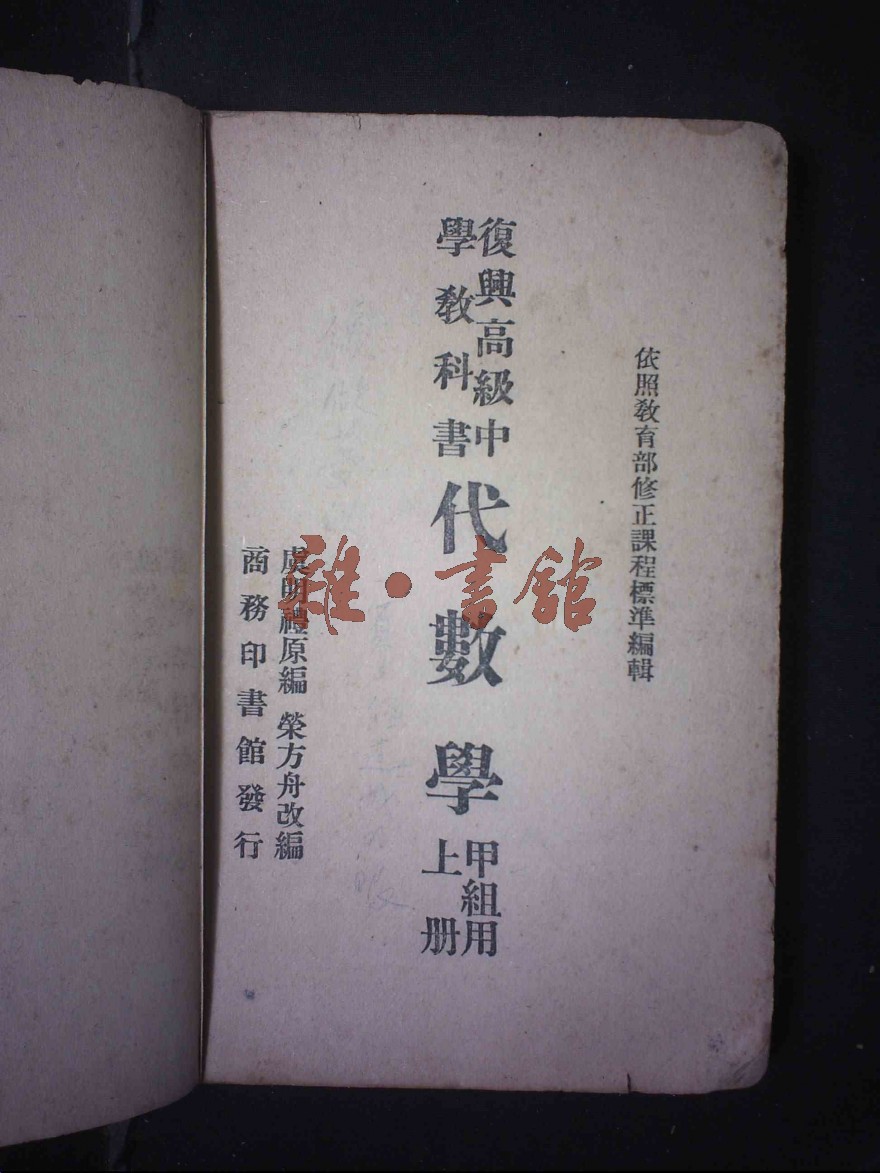 依照敎育部修正課程標準編輯
復興高級中
學敎科書
代數學
甲組用
上册
虞明禮原編 榮方舟改編
商務印書館發行
雜·書館